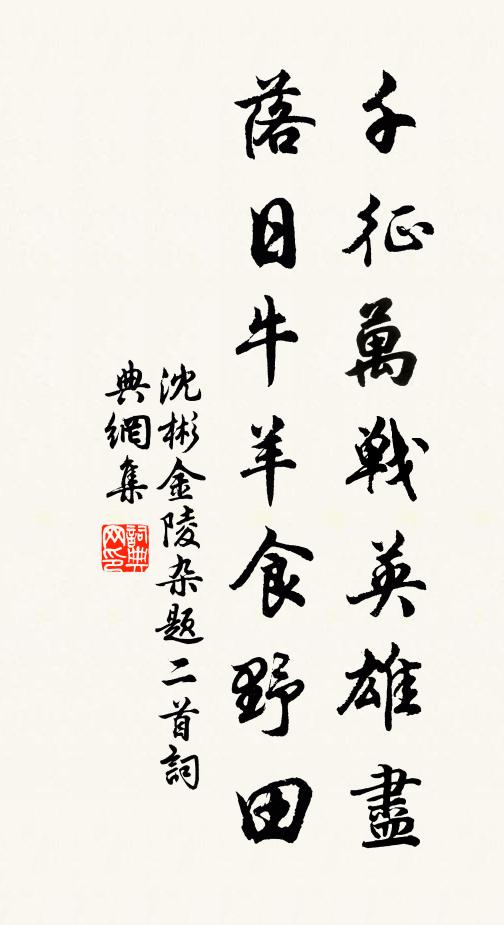 千征萬戰英雄盡
落日牛羊食野田
沈彬金陵杂题二首詞
典網集
詞典
网印